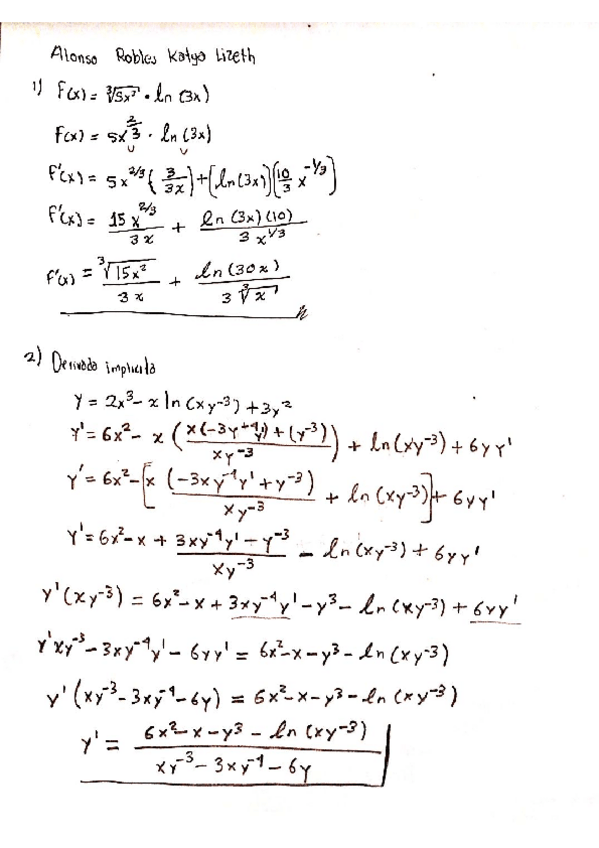 Alonso Robles Katya Lizeth
1) F(x) = ∛5x² · ln (3x)
F(x) = 5x^{2/3} · ln (3x)
u v
F'(x) = 5x^{2/3} (3/3x) + (ln (3x)) (10/3 x^{-1/3})
F'(x) = 15x^{2/3}/3x + ln (3x) (10)/3x^{1/3}
F'(x) = ∛15x²/3x + ln (30x)/3∛x
2) Derivada implicita
y = 2x³ - x ln (xy⁻³) + 3y²
y' = 6x² - x (x(-3y⁻⁴y') + (y⁻³)/xy⁻³) + ln (xy⁻³) + 6yy'
y' = 6x² - [x (-3xy⁻⁴y' + y⁻³)/xy⁻³ + ln (xy⁻³)] + 6yy'
y' = 6x² - x + 3xy⁻⁴y' - y⁻³/xy⁻³ - ln (xy⁻³) + 6yy'
y' (xy⁻³) = 6x² - x + 3xy⁻⁴y' - y³ - ln (xy⁻³) + 6yy'
y'xy⁻³ - 3xy⁻⁴y' - 6yy' = 6x² - x - y³ - ln (xy⁻³)
y' (xy⁻³ - 3xy⁻⁴ - 6y) = 6x² - x - y³ - ln (xy⁻³)
y' = 6x² - x - y³ - ln (xy⁻³)/xy⁻³ - 3xy⁻⁴ - 6y